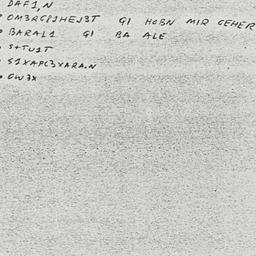 DAF1,N
• OM3RCP1HEJ3T GI HOBN MIR GEHER
• BARAL1 GI BA ALE
• S+TU1T
• S1XAPC3XARA.N
• OW3X